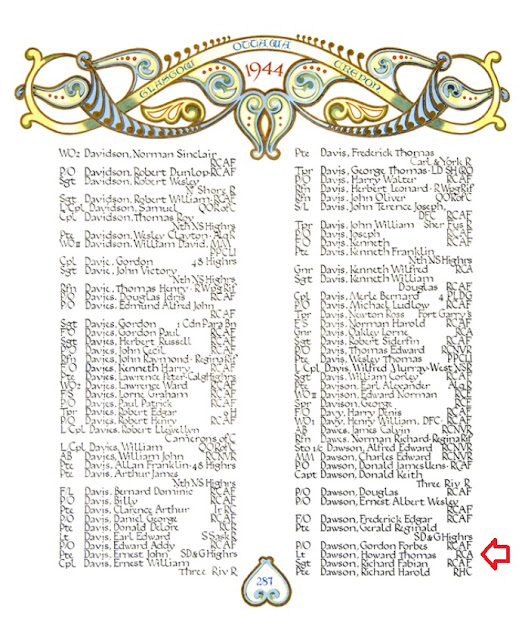 GLASGOW OTTAWA CREPON
1944
WO2 Davidson, Norman Sinclair
RCAF
P/O Davidson, Robert Dunlop RCAF
Sgt Davidson, Robert Wesley
N Shore R
Sgt Davidson, Robert William RCAF
L/Cpl Davidson, Samuel QOR of C
Cpl Davidson, Thomas Roy
Nth NS Highrs
Pte Davidson, Wesley Clayton Alq R
WOII Davidson, William David, MM
PPCLI
Cpl Davie, Gordon 48 Highrs
Sgt Davie, John Victory
Nth NS Highrs
Rfn Davie, Thomas Henry R Wpg Rif
P/O Davies, Douglas Idris RCAF
P/O Davies, Edmund Alfred John
RCAF
Sgt Davies, Gordon 1 Cdn Para Bn
Davies, Gordon Paul RCAF
Sgt Davies, Herbert Russell RCAF
Davies, John Cecil RCAF
Rfn Davies, John Raymond Regina Rif
F/O Davies, Kenneth Harry RCAF
Pte Davies, Lawrence Peter Calg Highrs
WO2 Davies, Lawrence Ward RCAF
F/S Davies, Lorne Graham RCAF
P/O Davies, Paul Patrick RCAF
Tpr Davies, Robert Edgar 9 H
P/O Davies, Robert Henry RCAF
L/Cpl Davies, Robert Llewellyn
Camerons of C
L/Cpl Davies, William QOR of C
AB Davies, William John RCNVR
Pte Davis, Allan Franklin 48 Highrs
Pte Davis, Arthur James
Nth NS Highrs
F/L Davis, Bernard Dominic RCAF
P/O Davis, Billy RCAF
Pte Davis, Clarence Arthur Ir RC
P/O Davis, Daniel George RCAF
Pte Davis, Donald Delore RCR
Lt Davis, Earl Edward S Sask R
P/O Davis, Edward Addy RCAF
Pte Davis, Ernest John SD&G Highrs
Cpl Davis, Ernest William
Three Riv R
Pte Davis, Frederick Thomas
Carl & York R
Tpr Davis, George Thomas LD SH (RC)
P/O Davis, Harry Walter RCAF
Rfn Davis, Herbert Leonard R Wpg Rif
Rfn Davis, John Oliver QOR of C
S/L Davis, John Terence Joseph,
DFC RCAF
Tpr Davis, John William Sher Fus R
Davis, Joseph RCAF
Davis, Kenneth RCAF
Pte Davis, Kenneth Franklin
Nth NS Highrs
Gnr Davis, Kenneth Wilfred RCA
Sgt Davis, Kenneth William
Douglas RCAF
Cpl Davis, Merle Bernard 4 PLDG
P/O Davis, Michael Ludlow RCAF
Tpr Davis, Newton Ross Fort Garrys
F/S Davis, Norman Harold RCAF
Gnr Davis, Oakley Lorne RCA
Sgt Davis, Robert Siderfin RCAF
Davis, Thomas Edward RCNVR
Pte Davis, Wesley Thomas PPCLI
L/Cpl Davis, Wilfred Murray West NSR
Sgt Davis, William Corley RCAF
Pte Davison, Earl Alexander Alq R
WOII Davison, Edward Norman RCE
Spr Davison, George RCE
F/O Davy, Harry Denis RCAF
WO1 Davy, Henry William, DFC RCAF
AB Dawes, James Calvin RCNVR
Rfn Dawes, Norman Richard Regina Rif
Sto 1/c Dawson, Alfred Edward RCNVR
MM Dawson, Charles Edward RCNVR
P/O Dawson, Donald James Uens RCAF
Capt Dawson, Donald Keith
Three Riv R
P/O Dawson, Douglas RCAF
P/O Dawson, Ernest Albert Wesley
RCAF
F/O Dawson, Frederick Edgar RCAF
Pte Dawson, Gerald Reginald
SD&G Highrs
P/O Dawson, Gordon Forbes RCAF
Lt Dawson, Howard Thomas RCA
Sgt Dawson, Richard Fabian RCAF
Pte Dawson, Richard Harold RHC
287